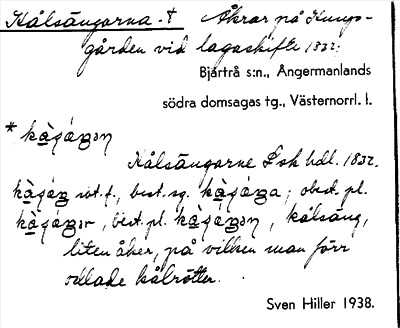 Kålsängarna. † Åkrar på Kungs-
gården vid lagaskifte 1832:
Bjärtrå s:n., Ångermanlands
södra domsagas tg., Västernorrl. l.
* kàgáŋən
Kålsängarne Lsk hdl. 1832.
kàgáŋ sbt. f., best. sg. kàgáŋa; obest. pl.
kàgáŋər, best. pl. kàgáŋən, kålsäng,
liten åker, på vilken man förr
odlade kålrötter.
Sven Hiller 1938.